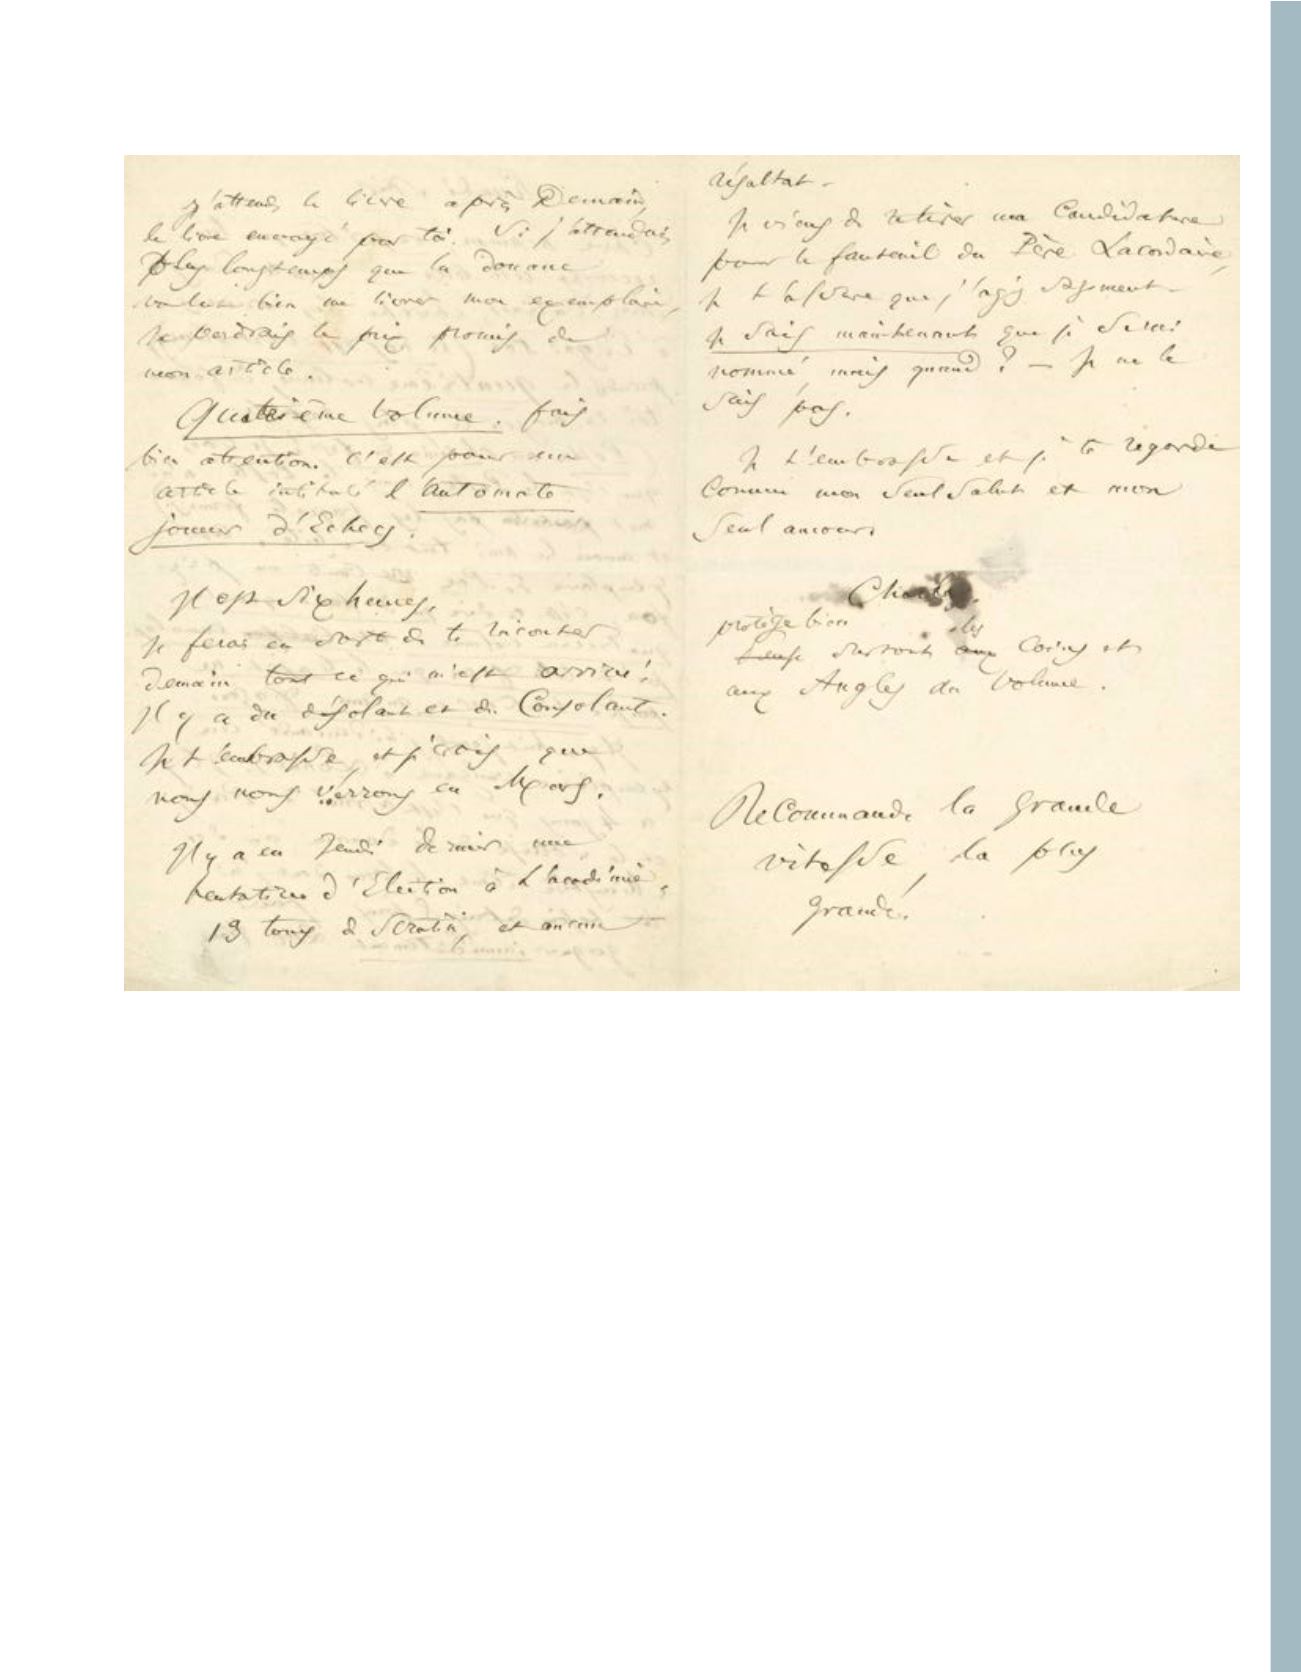 J'attends le livre après Demain,
le livre envoyé par toi. Si j'attendais
plus longtemps que la douane
voulut bien me livrer mon exemplaire,
je perdrais le prix promis de
mon article.
Quatrième Volume. fais
bien attention. C'est pour un
article intitulé l'automate
joueur d'Echecs.
Il est Six heures,
Je ferai en sorte de te raconter
demain tout ce qui m'est arrivé.
Il y a du désolant et du Consolant.
Je t'embrasse, et je crois que
nous nous verrons en Mars.
Il y a eu Jeudi dernier une
tentative d'Election à L'académie,
13 tours de Scrutin, et aucun
résultat –
Je viens de retirer ma Candidature
pour le fauteuil du Père Lacordaire,
je t'assure que j'agis sagement –
je sais maintenant que je serai
nommé, mais quand ? — Je ne le
sais pas.
Je t'embrasse et je te regarde
comme mon Seul Salut et mon
Seul amour.
Charles.
protège bien les
surtout aux Coins et
aux Angles du Volume.
Recommande la grande
vitesse, la plus
grande.